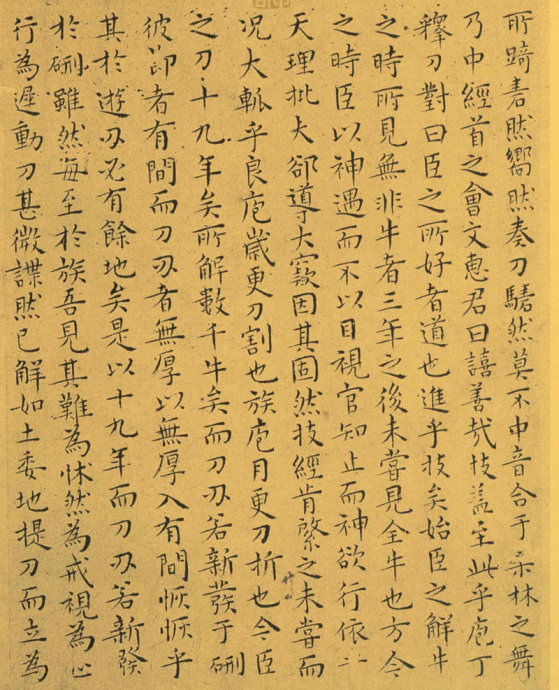 所踦砉然嚮然奏刀騞然莫不中音合于桑林之舞
乃中經首之會文惠君曰譆善哉技蓋至此乎庖丁
釋刀對曰臣之所好者道也進乎技矣始臣之解牛
之時所見無非牛者三年之後未嘗見全牛也方今
之時臣以神遇而不以目視官知止而神欲行依乎
天理批大郤導大窾因其固然技經肯綮之未嘗而
况大軱乎良庖歲更刀割也族庖月更刀折也今臣
之刀十九年矣所解數千牛矣而刀刃若新發于硎
彼節者有間而刀刃者無厚以無厚入有間恢恢乎
其於遊刃必有餘地矣是以十九年而刀刃若新發
於硎雖然每至於族吾見其難為怵然為戒視為止
行為遲動刀甚微謋然已解如土委地提刀而立為